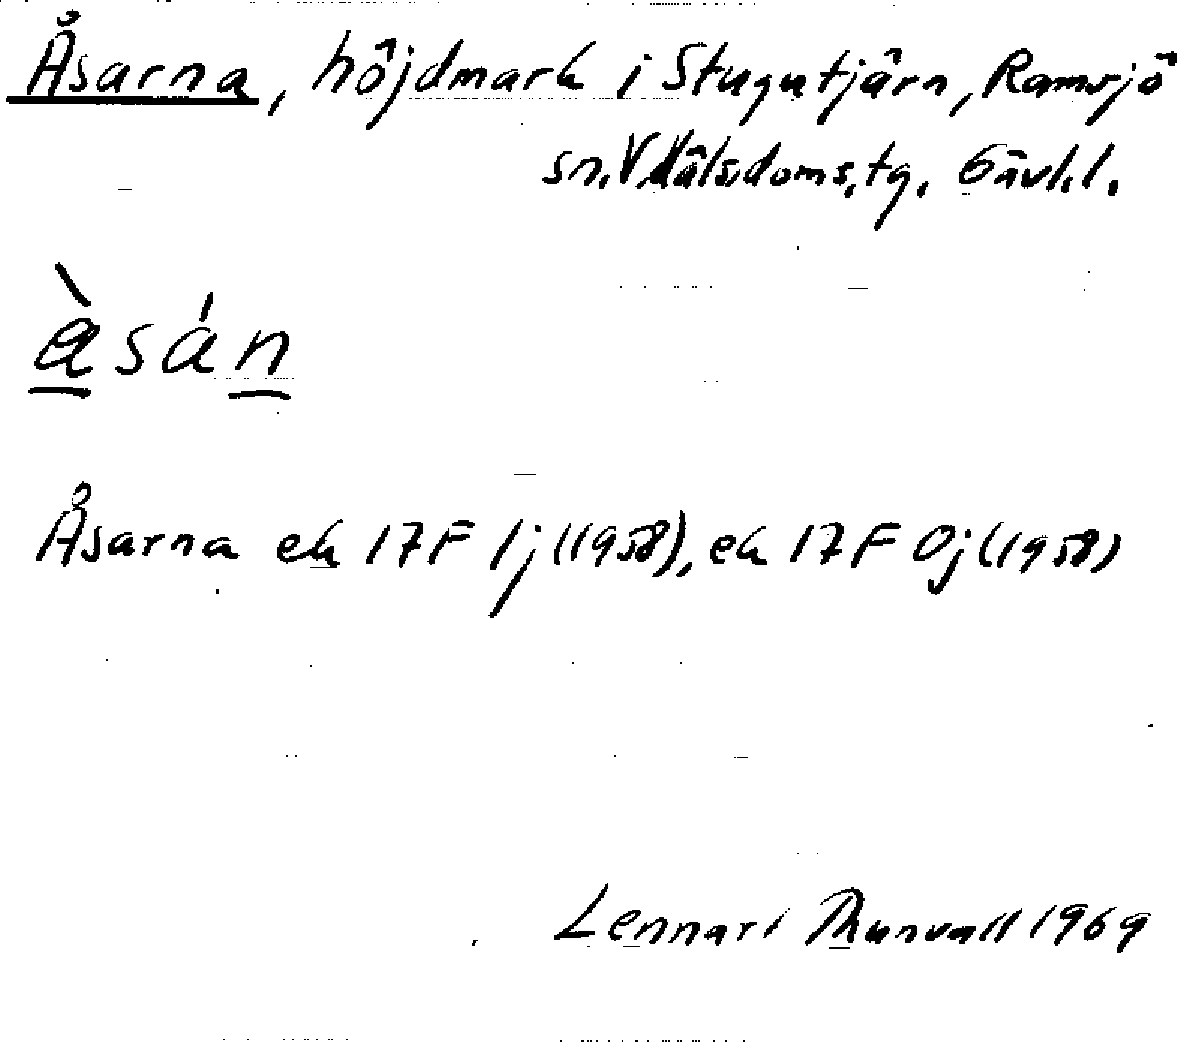 Åsarna, höjdmark i Stugutjärn, Ramsjö
sn. V. Häls. doms. tg. Gävl. l.
àsán
Åsarna ek 17F 1j (1958), ek 17F 0j (1958)
Lennart Thunvall 1969